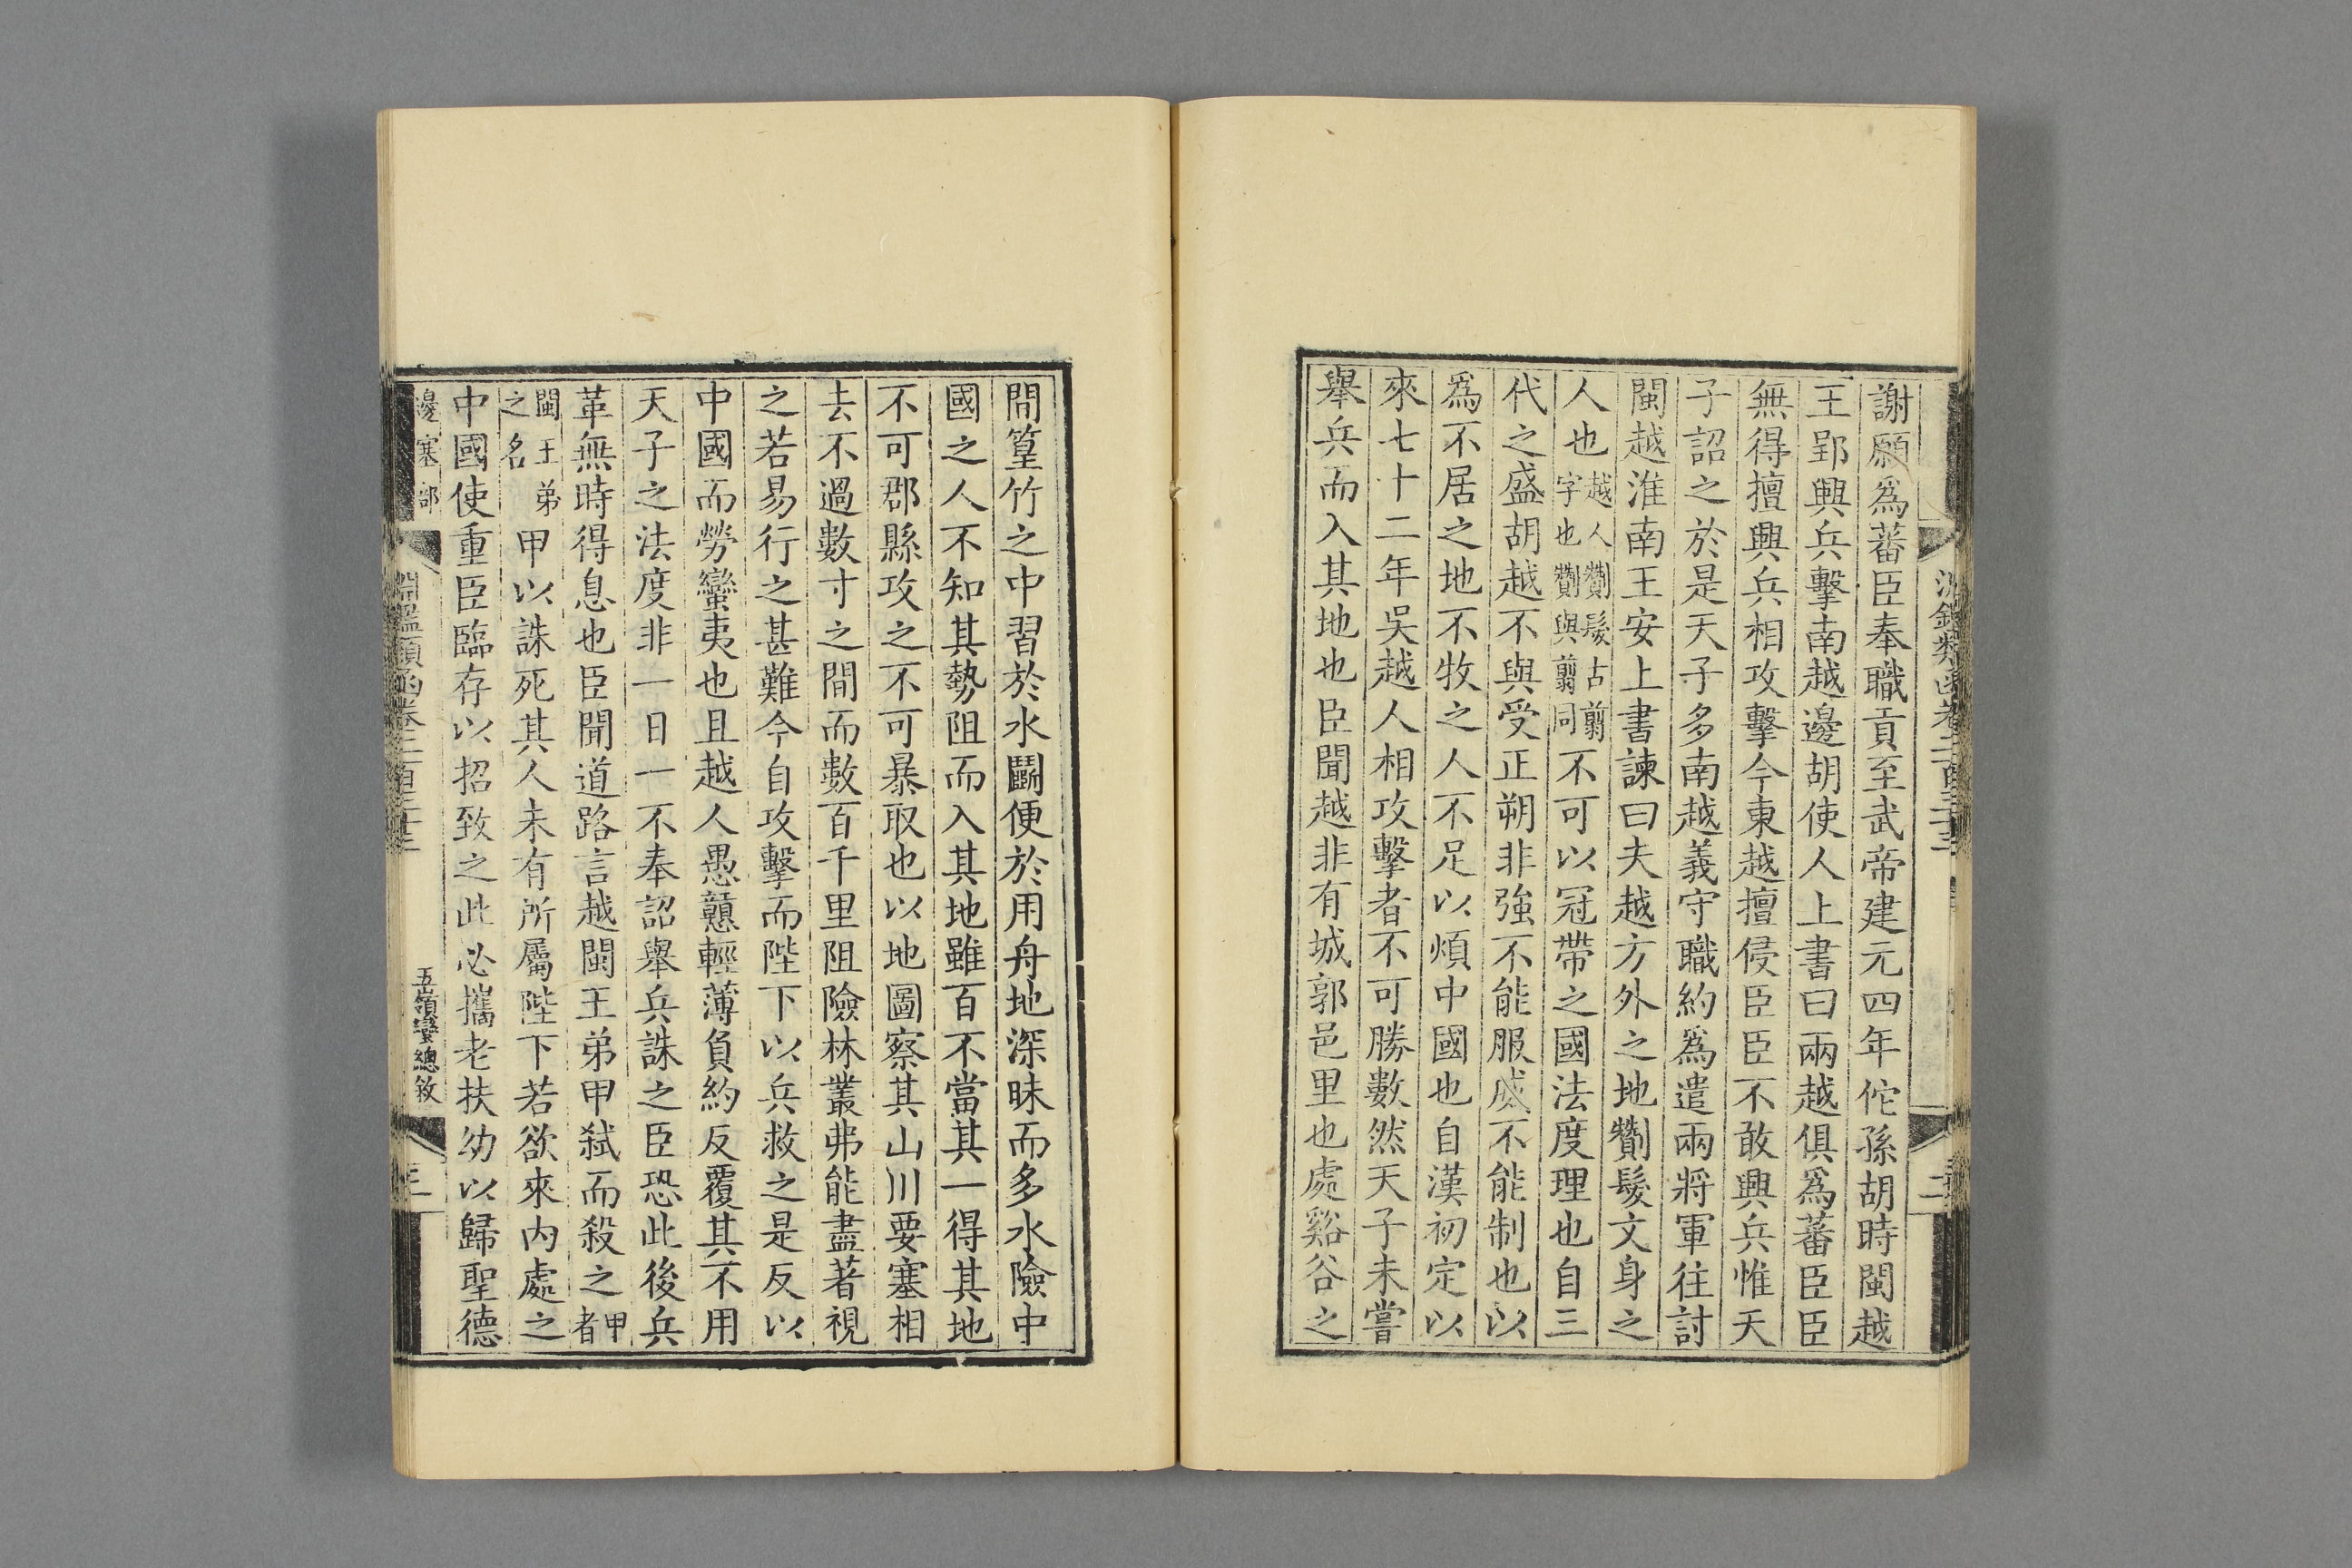 謝願爲蕃臣奉職貢至武帝建元四年佗孫胡時閩越
王郢興兵擊南越邊胡使人上書曰兩越俱爲蕃臣臣
無得擅興兵相攻擊今東越擅侵臣臣不敢興兵惟天
子詔之於是天子多南越義守職約爲遣兩將軍往討
閩越淮南王安上書諫曰夫越方外之地劗髮文身之
人也越人劗髮古翦字也劗與翦同不可以冠帶之國法度理也自三
代之盛胡越不與受正朔非強不能服威不能制也以
爲不居之地不牧之人不足以煩中國也自漢初定以
來七十二年吳越人相攻擊者不可勝數然天子未嘗
舉兵而入其地也臣聞越非有城郭邑里也處谿谷之
間篁竹之中習於水鬬便於用舟地深昧而多水險中
國之人不知其勢阻而入其地雖百不當其一得其地
不可郡縣攻之不可暴取也以地圖察其山川要塞相
去不過數寸之間而數百千里阻險林叢弗能盡著視
之若易行之甚難今自攻擊而陛下以兵救之是反以
中國而勞蠻夷也且越人愚戇輕薄負約反覆其不用
天子之法度非一日一不奉詔舉兵誅之臣恐此後兵
革無時得息也臣聞道路言越閩王弟甲弒而殺之甲者
閩王弟之名甲以誅死其人未有所屬陛下若欲來內處之
中國使重臣臨存以招致之此必攜老扶幼以歸聖德
邊塞部
淵鑑類函卷二百三十三
五嶺蠻總敘